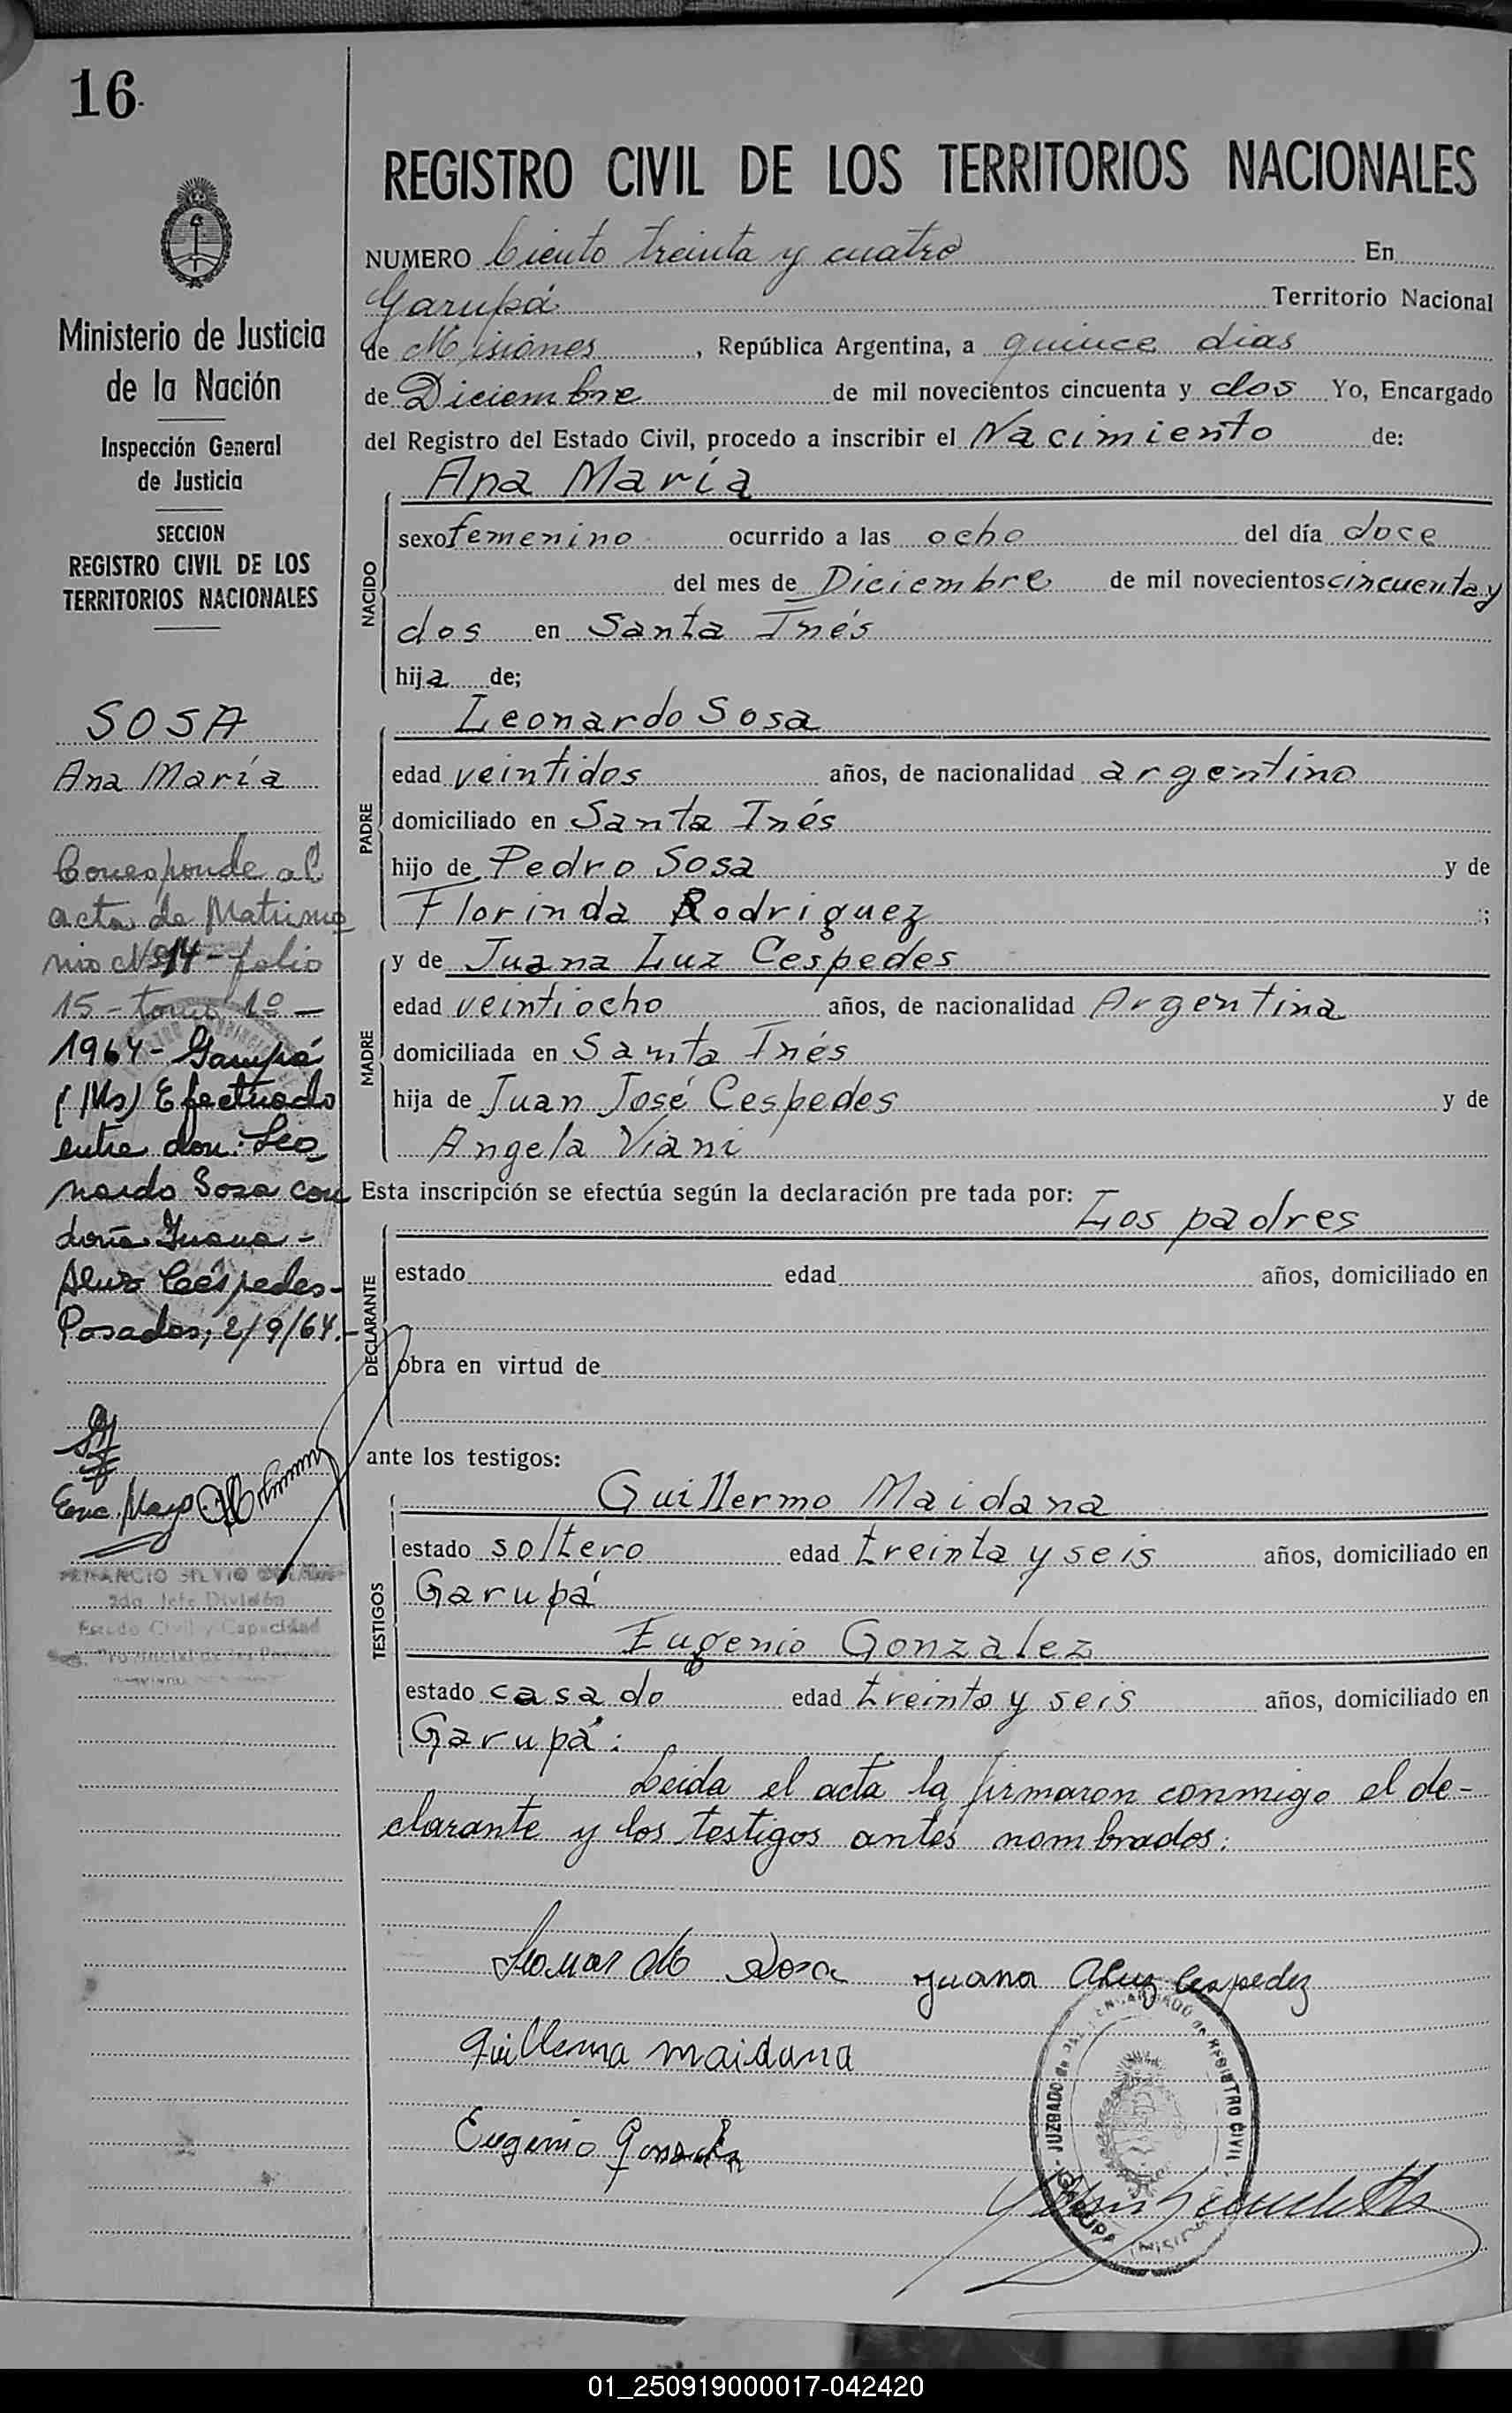 16
REGISTRO CIVIL DE LOS TERRITORIOS NACIONALES
Ministerio de Justicia
de la Nación
Inspección General
de Justicia
SECCION
REGISTRO CIVIL DE LOS
TERRITORIOS NACIONALES
SOSA
Ana María
Corresponde al
acta de Matrimo
nio Nº 14 - folio
15 - tomo 1º -
1964 - Garupá
(Ms) Efectuado
entre don: Leo
nardo Sosa con
doña Juana -
Aluz Céspedes -
Posadas, 2/9/64.-
2do. Jefe División
Estado Civil y Capacidad
NUMERO Ciento treinta y cuatro En
Garupá Territorio Nacional
de Misiones, República Argentina, a quince dias
de Diciembre de mil novecientos cincuenta y dos Yo, Encargado
del Registro del Estado Civil, procedo a inscribir el Nacimiento de:
NACIDO
Ana María
sexo femenino ocurrido a las ocho del día doce
del mes de Diciembre de mil novecientos cincuenta y
dos en Santa Inés
hija de;
PADRE
Leonardo Sosa
edad veintidos años, de nacionalidad argentino
domiciliado en Santa Inés
hijo de Pedro Sosa y de
Florinda Rodriguez ;
MADRE
y de Juana Luz Cespedes
edad veintiocho años, de nacionalidad Argentina
domiciliada en Santa Inés
hija de Juan José Cespedes y de
Angela Viani
Esta inscripción se efectúa según la declaración pre tada por:
DECLARANTE
Los padres
estado edad años, domiciliado en
obra en virtud de
ante los testigos:
TESTIGOS
Guillermo Maidana
estado soltero edad treinta y seis años, domiciliado en
Garupá
Eugenio Gonzalez
estado casado edad treinta y seis años, domiciliado en
Garupá.
Leida el acta la firmaron conmigo el de-
clarante y los testigos antes nombrados.
Leonardo Sosa Juana Aluz Cespedez
Guillermo maidana
Eugenio
JUZGADO de PAZ y ENCARGADO de REGISTRO CIVIL
GARUPA
01_250919000017-042420